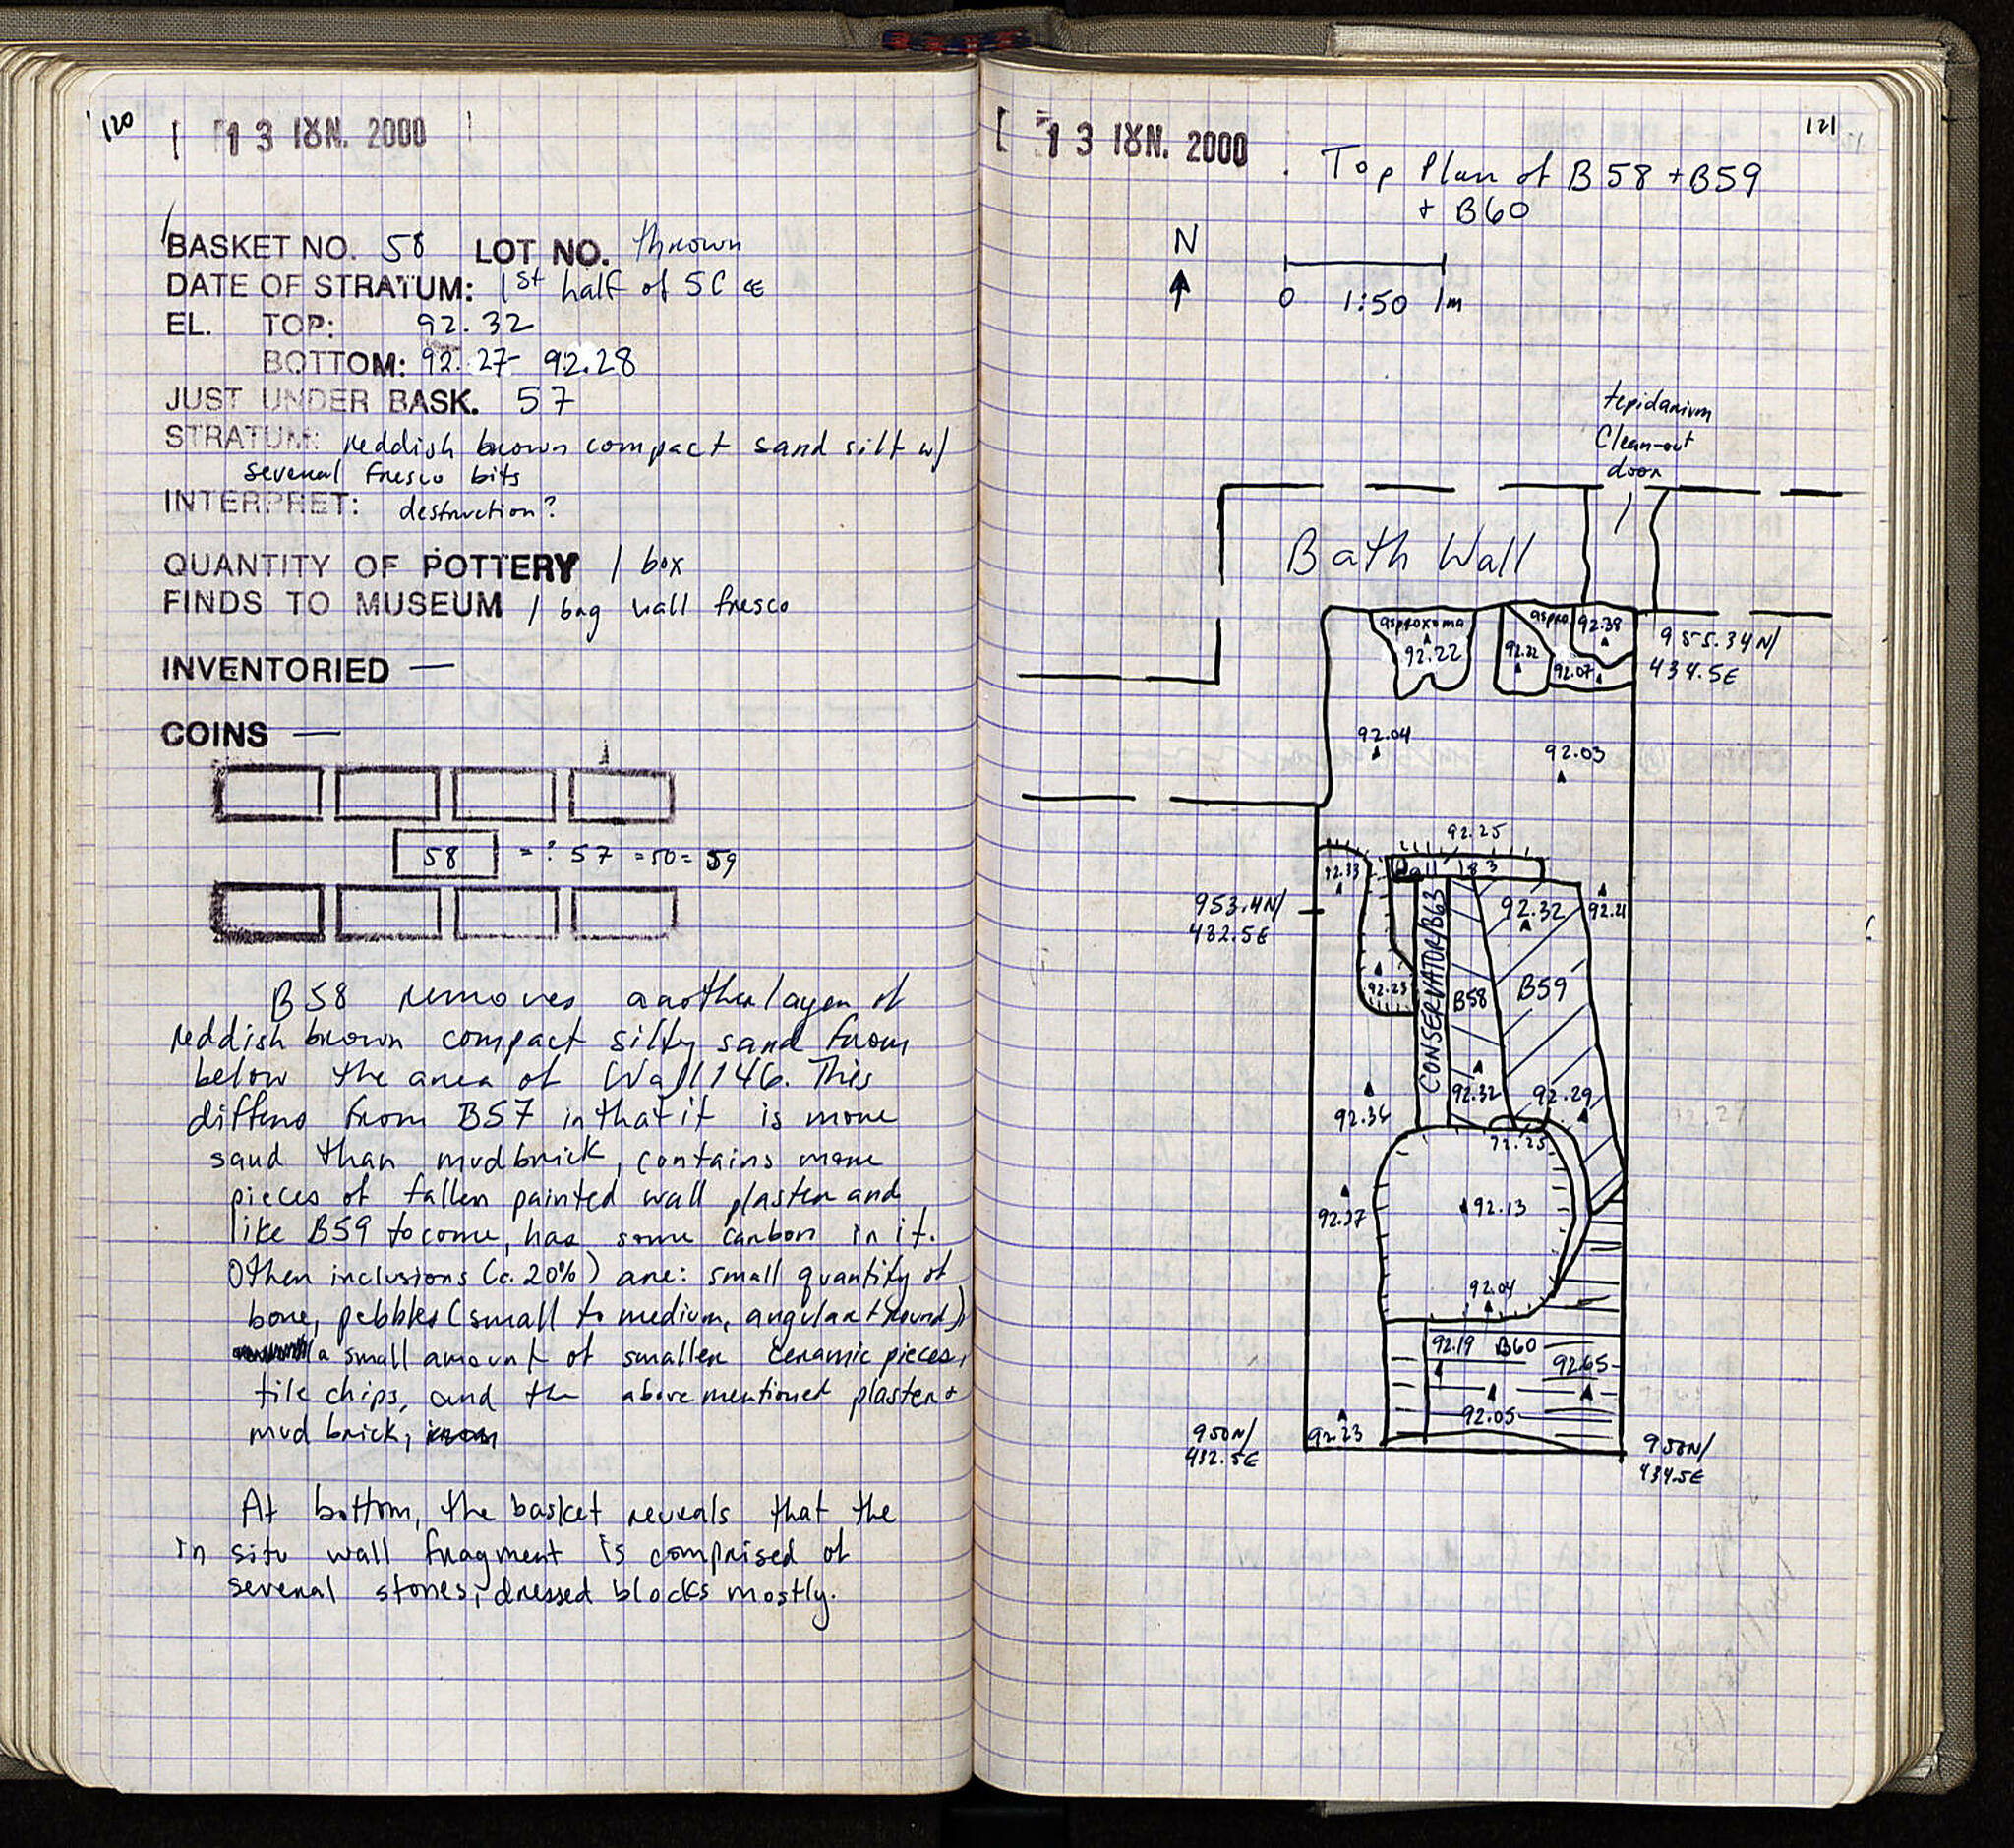 120
13 ΙΟΥΝ. 2000
BASKET NO. 58 LOT NO. thrown
DATE OF STRATUM: 1st half of 5C CE
EL. TOP: 92.32
BOTTOM: 92.27- 92.28
JUST UNDER BASK. 57
STRATUM: reddish brown compact sand silt w/
several fresco bits
INTERPRET: destruction?
QUANTITY OF POTTERY 1 box
FINDS TO MUSEUM 1 bag wall fresco
INVENTORIED —
COINS —
58 =? 57 =50= 59
B58 removes another layer of
reddish brown compact silty sand from
below the area of Wall 146. This
differs from B57 in that it is more
sand than mudbrick, contains more
pieces of fallen painted wall plaster and
like B59 to come, has some carbon in it.
Other inclusions (c. 20%) are: small quantity of
bone, pebbles (small to medium, angular + round),
a small amount of smaller ceramic pieces,
tile chips, and the above mentioned plaster +
mud brick,
At bottom, the basket reveals that the
in situ wall fragment is comprised of
several stones, dressed blocks mostly.
121
13 ΙΟΥΝ. 2000
Top Plan of B58 + B59
+ B60
N
0 1:50 1m
tepidarium
Clean-out
door
Bath Wall
asproxoma
92.22
aspro
92.38
92.22
92.07
955.34N/
434.5E
92.04
92.03
92.25
92.33
Wall 183
953.4N/
432.5E
92.32
92.21
CONSERVATOR/B63
92.23
B58
B59
92.32
92.29
92.36
92.25
92.37
92.13
92.04
92.19 B60
92.65
92.05
92.23
950N/
432.5E
950N/
434.5E